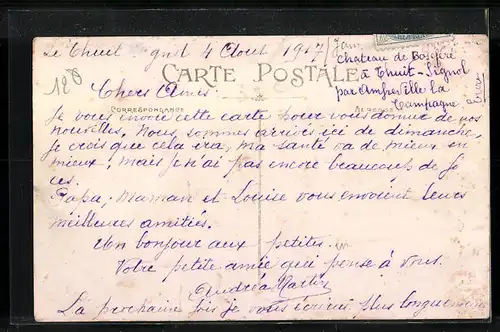 Le Thuit Signol 4 Août 1917
Château de Bosgére
à Thuit-Signol
par Amfreville la
Campagne
CARTE POSTALE
Chers Amis.
CORRESPONDANCE
Je vous envoie cette carte pour vous donner de nos
nouvelles, Nous sommes arrivés ici de dimanche,
je crois que cela ira, ma santé va de mieux en
mieux, mais je n'ai pas encore beaucoup de for
ces.
Papa, Maman et Louise vous envoient leurs
meilleures amitiés.
Un bonjour aux petites.
Votre petite amie qui pense à vous.
Andréa Martin
La prochaine fois je vous écrirai plus longuement